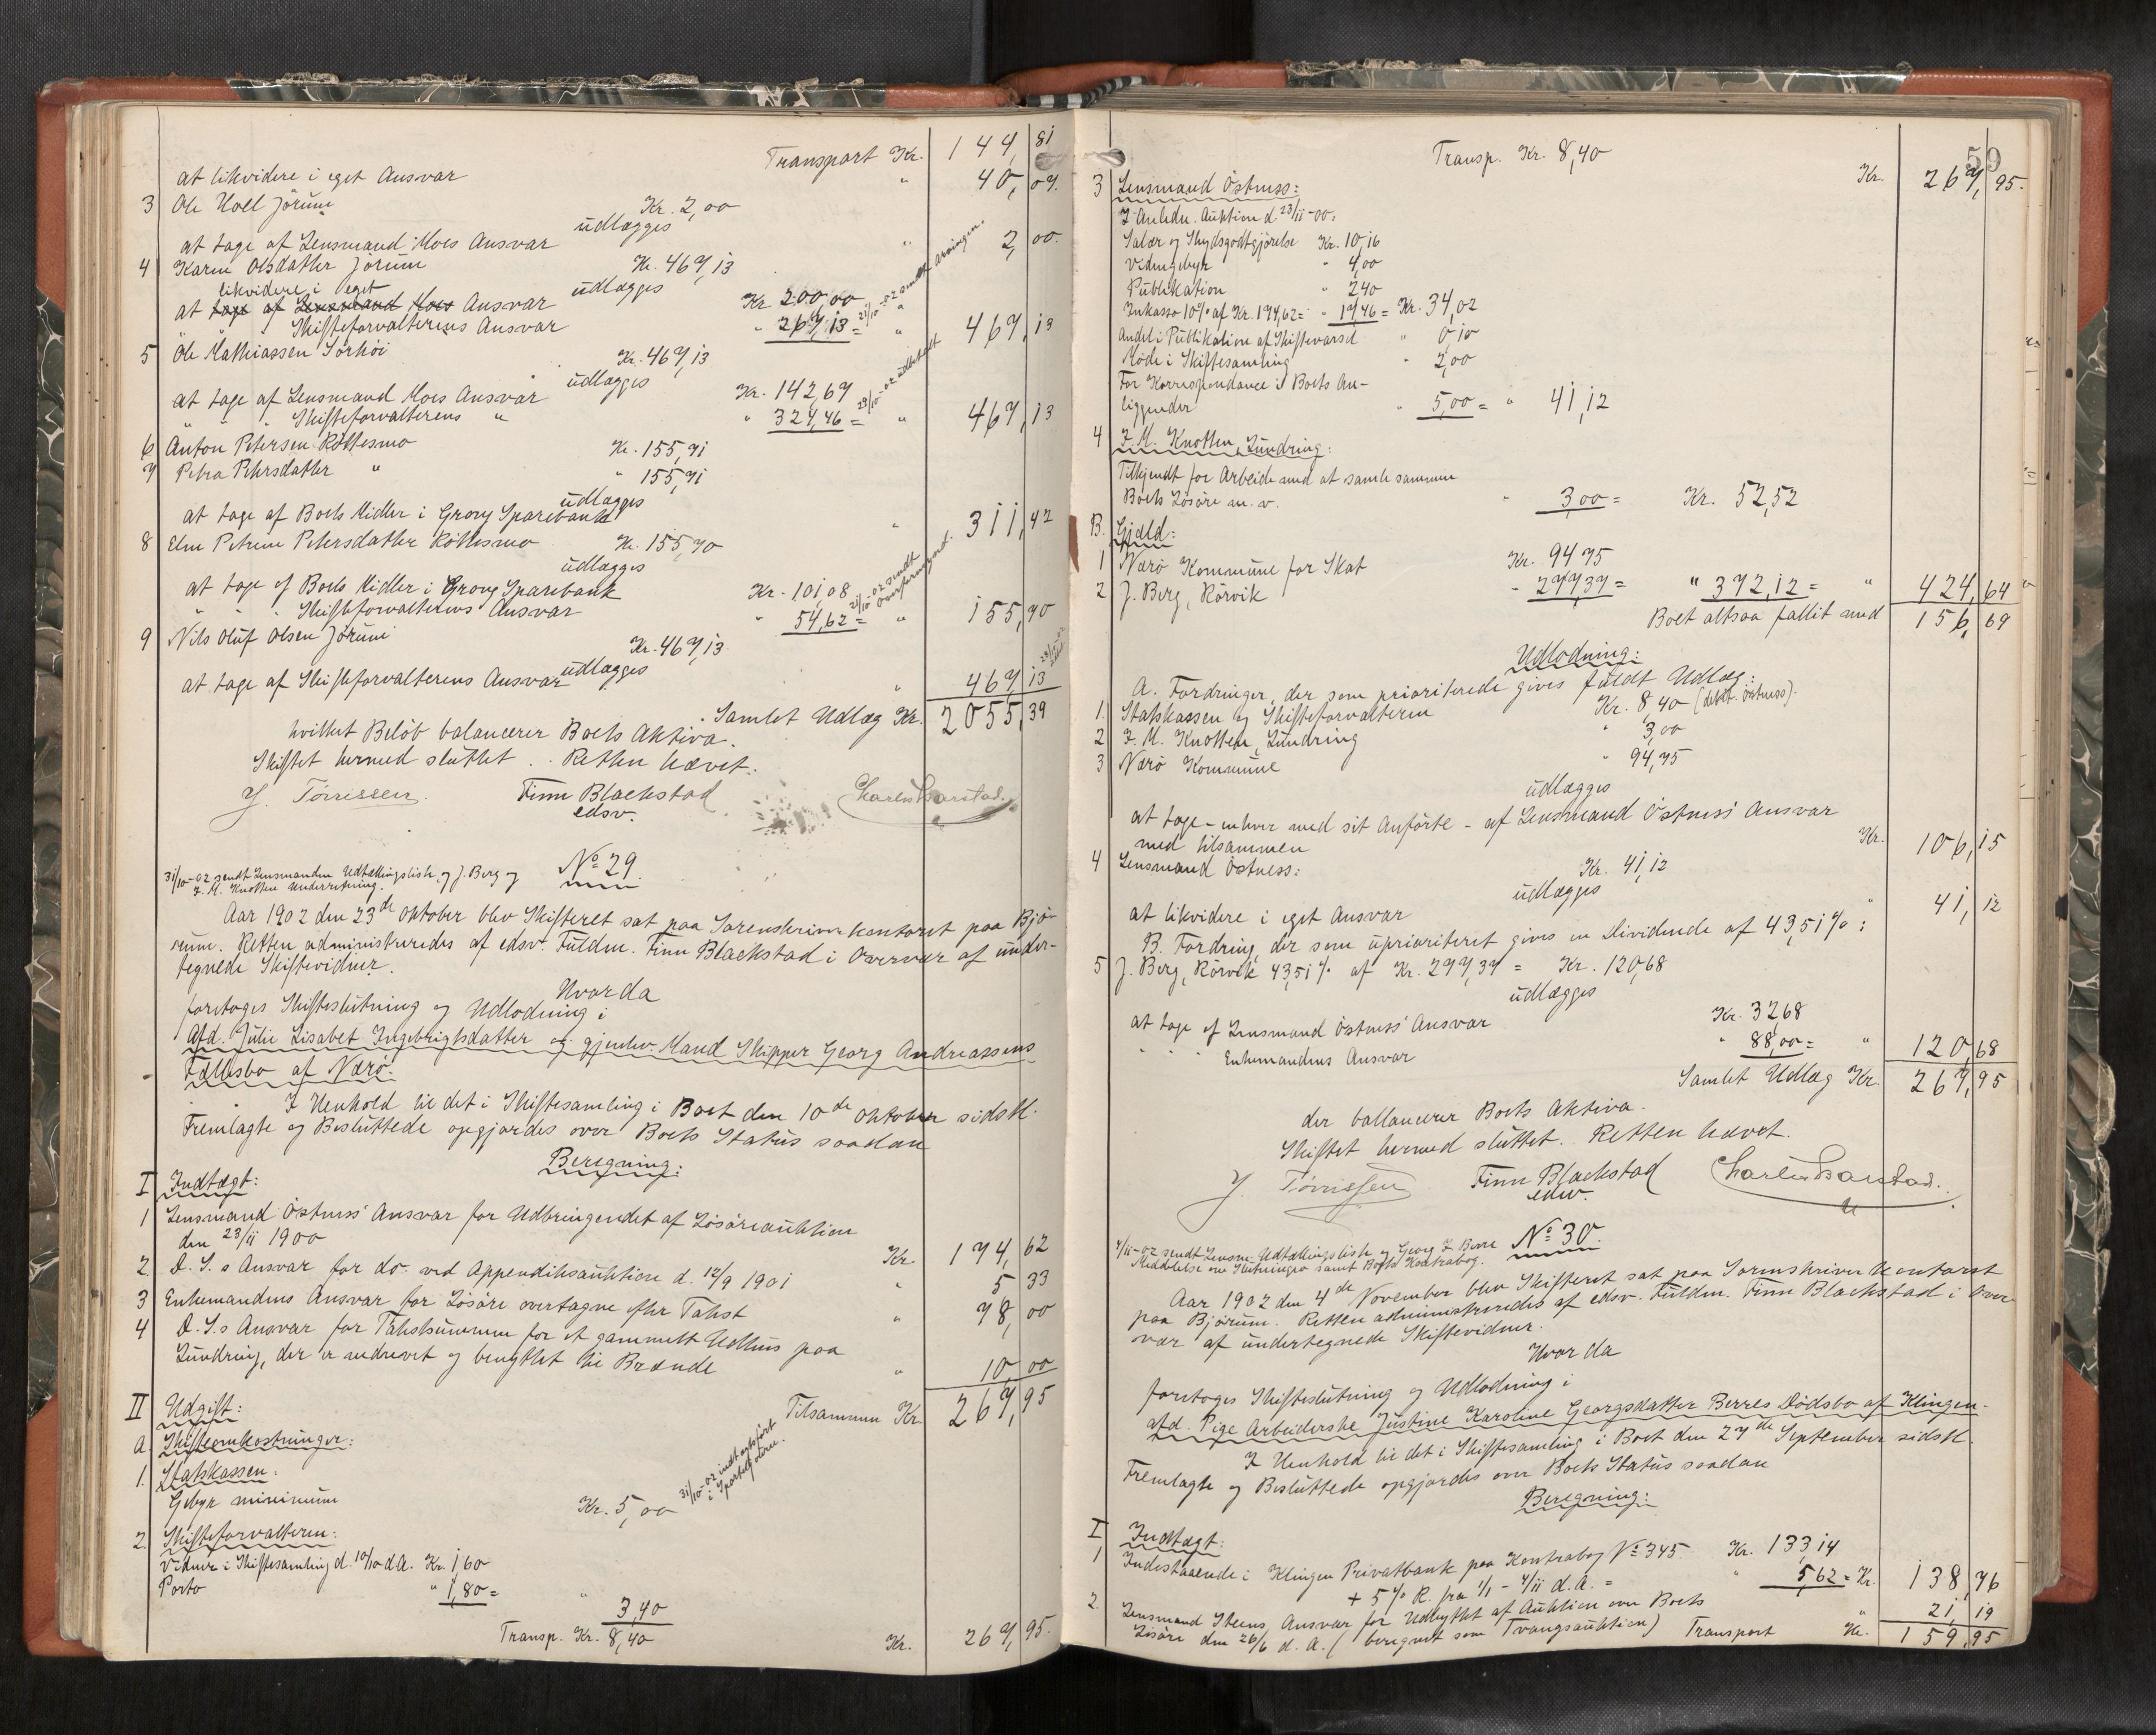 Transport Kr. 147,81
at likvidere i eget Ansvar " 40,07.
3 Ole Moll Jörum Kr. 2,00
udlægges
at tage af Lensmand Moes Ansvar " 2,00.
4 Karen Olsdatter Jörum Kr. 467,13
udlægges
likvidere i eget
at tage af Lensmand Moes Ansvar Kr. 200,00
" " Skifteforvalterens Ansvar " 267,13 = " 467,13
5 Ole Mathiassen Sörhöi Kr. 467,13
udlægges
at tage af Lensmand Moes Ansvar Kr. 142,67
" " " Skifteforvalterens " " 324,46 = " 467,13
6 Anton Petersen Röttesmo Kr. 155,71
7 Petra Petersdatter " " 155,71
udlægges
at tage af Boets Midler i Grong Sparebank " 311,42
8 Elen Petrine Petersdatter Röttesmo Kr. 155,70
udlægges
at tage af Boets Midler i Grong Sparebank Kr. 101,08
" " " Skifteforvalterens Ansvar " 54,62 = " 155,70
21/10-02 sendt Overformynd.
9 Nils Oluf Olsen Jörum Kr. 467,13
udlægges
at tage af Skifteforvalterens Ansvar " 467,13
Samlet Udlæg Kr. 2055,39
hvilket Belöb balancerer Boets Aktiva.
Skiftet hermed sluttet. Retten hævet.
J. Törrissen. Finn Blackstad
edsv.
No 29.
31/10-02 sendt Lensmanden Udtællingsliste og J. Berg og
F. M. Knotten Underretning.
Aar 1902 den 23de Oktober blev Skifteret sat paa Sorenskriverkontoret paa Bjö-
rum. Retten administreredes af edsv. Fuldm. Finn Blackstad i Overvær af under-
tegnede Skiftevidner.
Hvorda
foretoges Skifteslutning og Udlodning i
Afd. Julie Lisabet Ingebrigtsdatter og gjenlev. Mand Skipper Georg Andreassens
Fællesbo af Nærö.
I Henhold til det i Skiftesamling i Boet den 10de Oktober sidstl.
Fremlagte og Besluttede opgjordes over Boets Status saadan
Beregning:
I Indtægt:
1 Lensmand Östness' Ansvar for Udbringendet af Lösöreauktion
den 23/11 1900 Kr. 174,62
2. D. S.s Ansvar for do. ved Appendiksauktion d. 12/9 1901 " 5 33
3 Enkemandens Ansvar for Lösöre overtagne efter Takst " 78,00
4 D. S.s Ansvar for Takstsummen for et gammelt Udhus paa
Lundring, der er nedrevet og benyttet til Brænde " 10,00
Tilsammen Kr. 267,95
II Udgift:
A. Skifteomkostninger:
1. Statskassen:
Gebyr minimum Kr. 5,00
2. Skifteforvalteren:
Vidner i Skiftesamling d. 10/10 d.A. Kr. 1,60
Porto " 1,80 = " 3,40
Transp. Kr. 8,40 Kr. 267,95.
59
Transp. Kr. 8,40 Kr. 267,95.
3 Lensmand Östness:
I Anledn. Auktion d. 23/11-00:
Salær og Skydsgodtgjörelse Kr. 10,16
Vidnegebyr " 4,00
Publikation " 2 40
Inkasso 10% af Kr. 174,62 = " 17,46 = Kr. 34,02
Andel i Publikation af Skiftevarsel " 0,10
Möde i Skiftesamling " 2,00
For Korrespondance i Boets An-
liggender " 5,00 = " 41,12
4 F. M. Knotten, Lundring:
Tilkjendt for Arbeide med at samle sammen
Boets Lösöre m. v. " 3,00 = Kr. 52,52
B. Gjæld:
1 Nærö Kommune for Skat Kr. 94 75
2 J. Berg, Rörvik " 277,37 = " 372,12 = " 424,64
Boet altsaa fallit med 156,69
Udlodning:
A. Fordringer, der som prioriterede gives fuldt Udlæg:
1. Statskassen og Skifteforvalteren Kr. 8,40 (debit. Östness).
2 F. M. Knotten, Lundring " 3,00
3 Nærö Kommune " 94,75
udlægges
at tage - enhver med sit Anförte - af Lensmand Östness' Ansvar
med tilsammen Kr. 106,15
4 Lensmand Östness: Kr. 41,12
udlægges
at likvidere i eget Ansvar " 41,12
B. Fordring, der som uprioriteret gives en Dividende af 43,51%:
5 J. Berg, Rörvik 43,51% af Kr. 277,37 = Kr. 120,68
udlægges
at tage af Lensmand Östness' Ansvar Kr. 32,68
" " " Enkemandens Ansvar " 88,00 = " 120,68
Samlet Udlæg Kr. 267,95
der ballancerer Boets Aktiva.
Skiftet hermed sluttet. Retten hævet.
J. Törrissen Finn Blackstad
edsv.
No 30.
4/11-02 sendt Lensm. Udtællingsliste og Georg I. Berre
Meddelelse om Slutningen samt Boets Kontrabog.
Aar 1902 den 4de November blev Skifteret sat paa Sorenskriverkontoret
paa Björum. Retten administreredes af edsv. Fuldm. Finn Blackstad i Over-
vær af undertegnede Skiftevidner.
Hvorda
foretoges Skifteslutning og Udlodning i
afd. Pige Arbeiderske Justine Karoline Georgsdatter Berres Dödsbo af Klingen.
I Henhold til det i Skiftesamling i Boet den 27de September sidstl.
Fremlagte og Besluttede opgjordes over Boets Status saadan
Beregning:
I Indtægt:
1 Indestaaende i Klingen Privatbank paa Kontrabog No 345 Kr. 133,14
+ 5% R. fra 1/1 - 4/11 d.A. = " 5,62 = Kr. 138,76
2. Lensmand Steens Ansvar for Udbyttet af Auktion over Boets
Lösöre den 26/6 d. A. (beregnet som Tvangsauktion) " 21,19
Transport Kr. 159,95